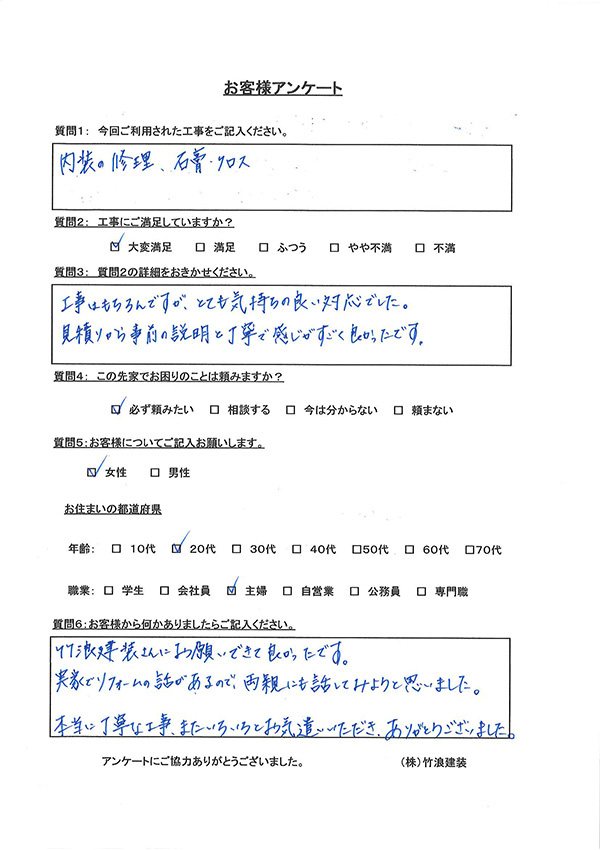 お客様アンケート
質問１： 今回ご利用された工事をご記入ください。
内装の修理、石膏・クロス
質問２： 工事にご満足していますか？
☑ 大変満足 □ 満足 □ ふつう □ やや不満 □ 不満
質問３： 質問２の詳細をおきかせください。
工事はもちろんですが、とても気持ちの良い対応でした。
見積りから事前の説明と丁寧で感じがすごく良かったです。
質問４： この先家でお困りのことは頼みますか？
☑ 必ず頼みたい □ 相談する □ 今は分からない □ 頼まない
質問５：お客様についてご記入お願いします。
☑ 女性 □ 男性
お住まいの都道府県
年齢： □ １０代 ☑ ２０代 □ ３０代 □ ４０代 □５０代 □ ６０代 □７０代
職業： □ 学生 □ 会社員 ☑ 主婦 □ 自営業 □ 公務員 □ 専門職
質問６：お客様から何かありましたらご記入ください。
竹浪建装さんにお願いできて良かったです。
実家でリフォームの話があるので、両親にも話してみようと思いました。
本当に丁寧な工事、またいろいろとお気遣いいただき、ありがとうございました。
アンケートにご協力ありがとうございました。 （株）竹浪建装